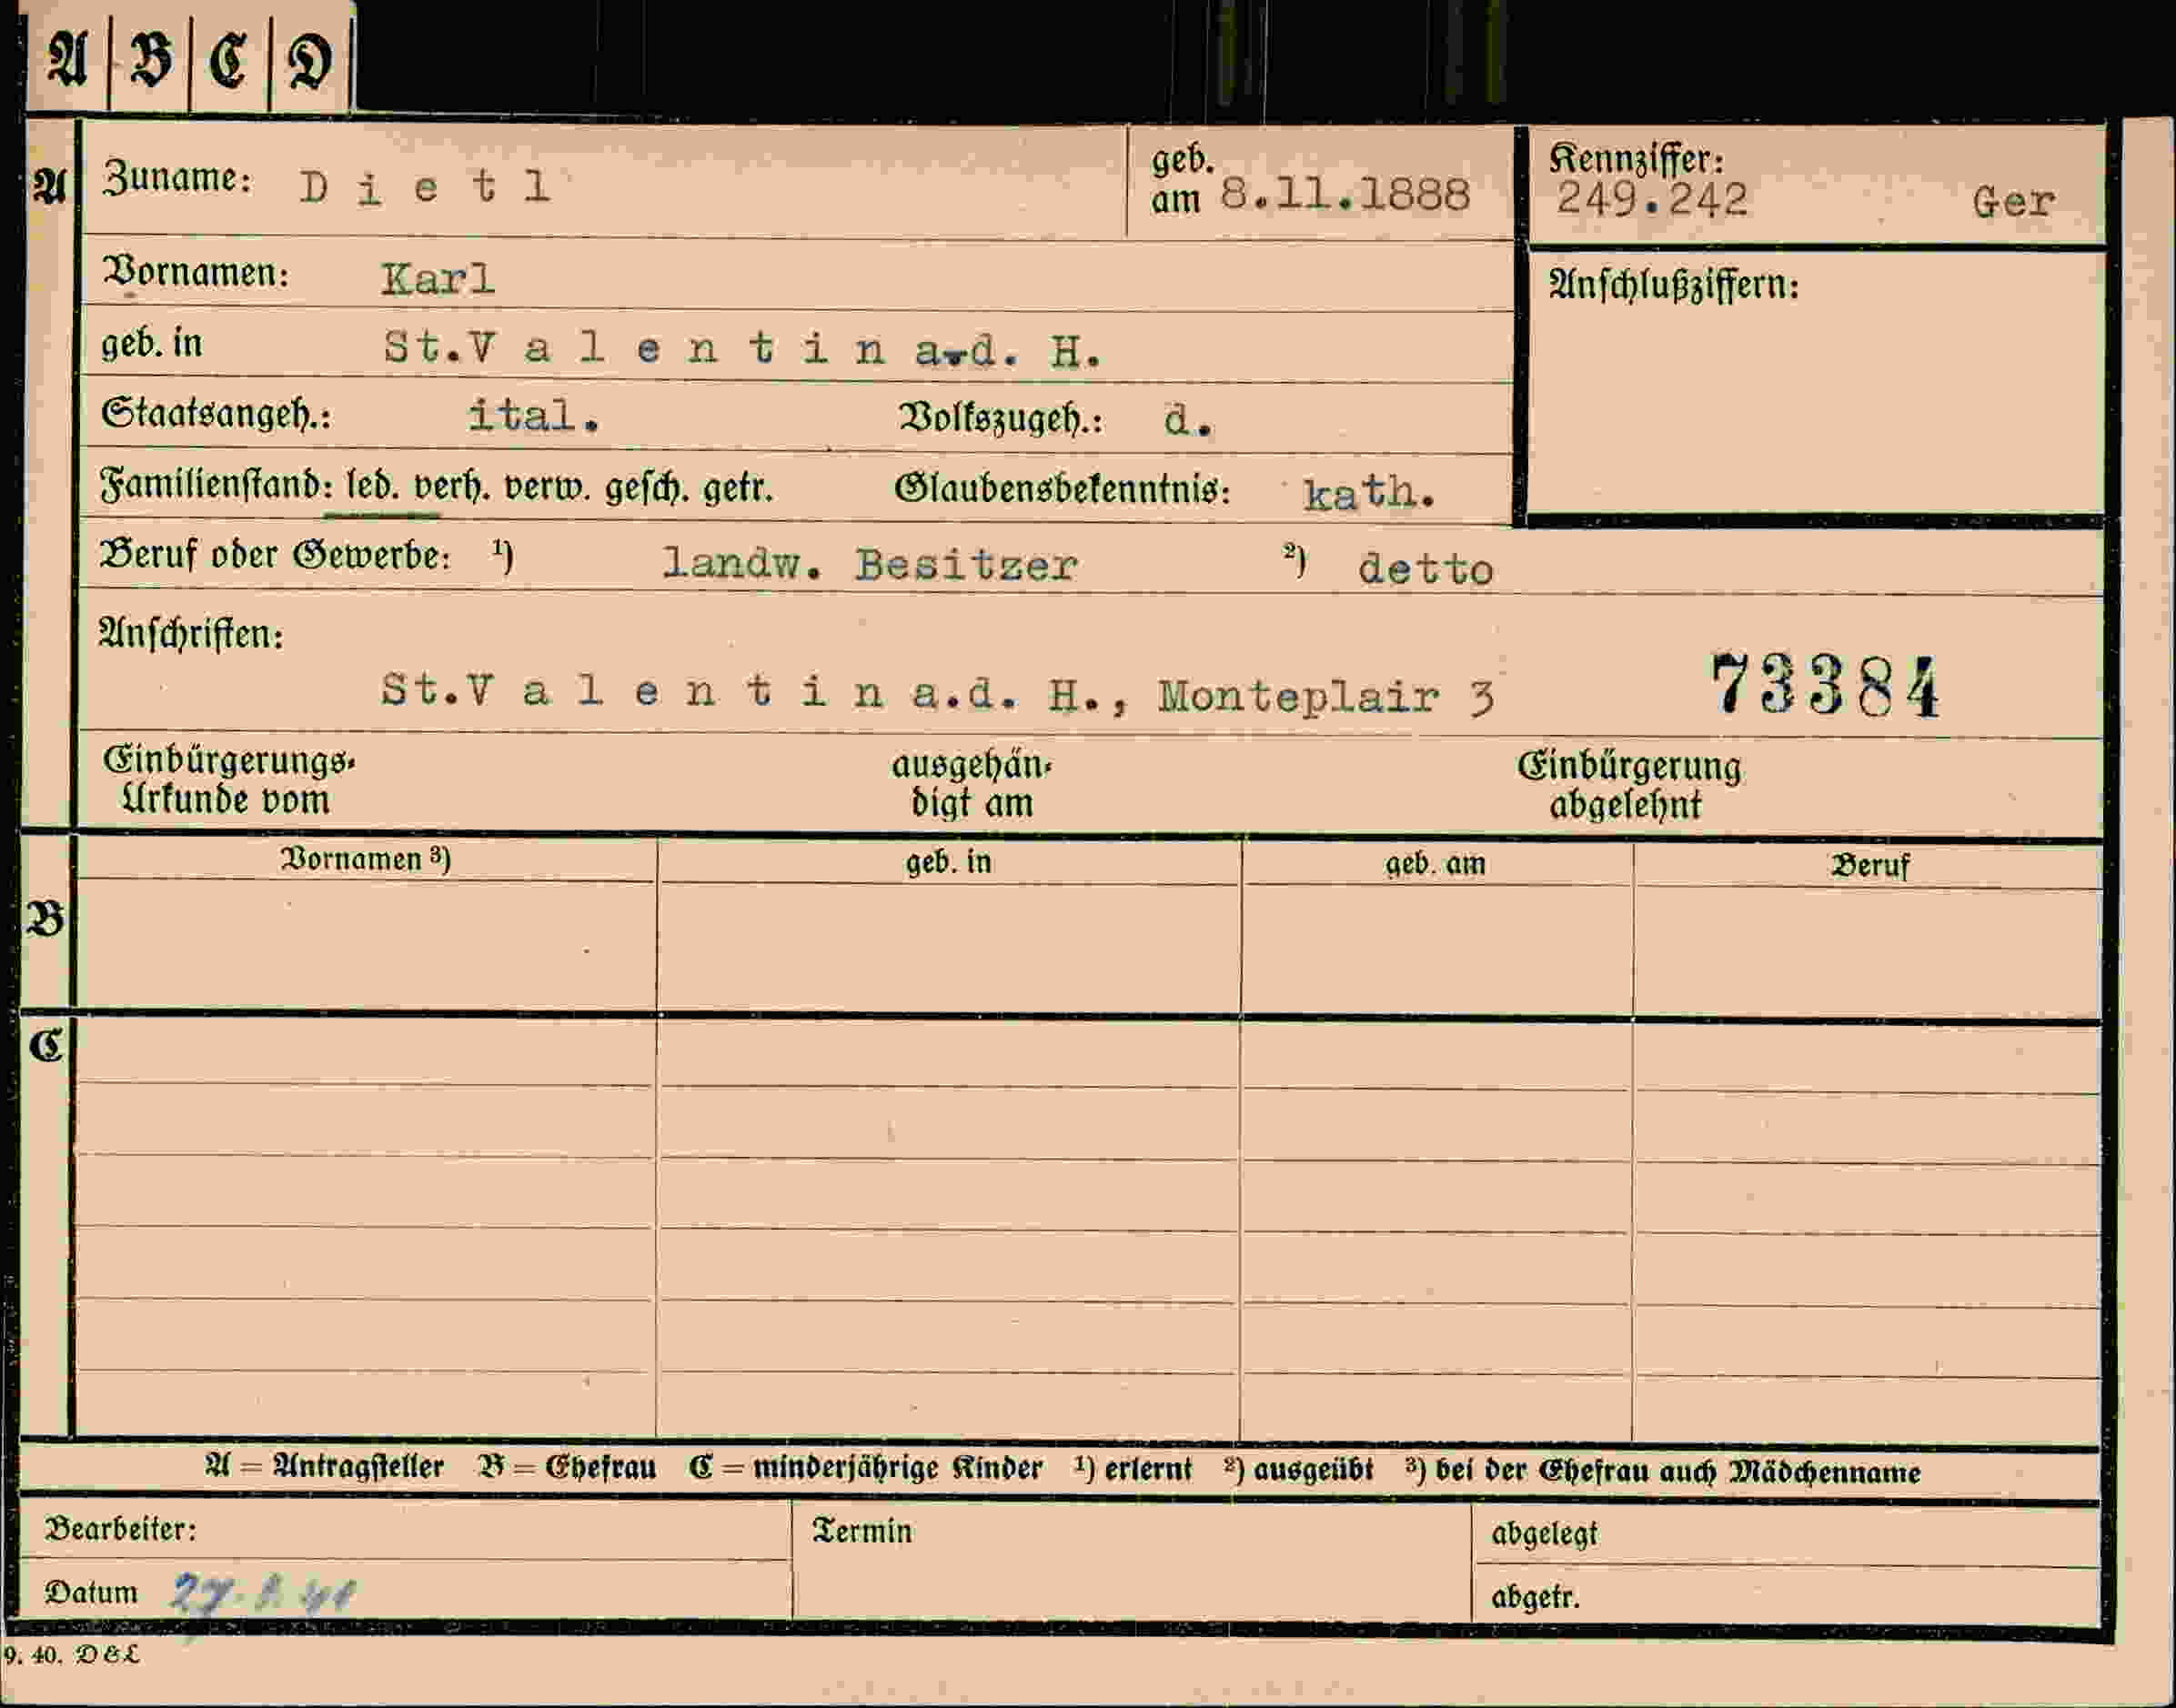 A B C D
A Zuname: D i e t l geb. am 8.11.1888 Kennziffer: 249.242 Ger
Vornamen: Karl Anschlußziffern:
geb. in St.V a l e n t i n a.d. H.
Staatsangeh.: ital. Volkszugeh.: d.
Familienstand: led. verh. verw. gesch. getr. Glaubensbekenntnis: kath.
Beruf oder Gewerbe: ¹) landw. Besitzer ²) detto
Anschriften:
St.V a l e n t i n a.d. H., Monteplair 3 73384
Einbürgerungs- ausgehän- Einbürgerung
Urkunde vom digt am abgelehnt
Vornamen ³) geb. in geb. am Beruf
B
C
A = Antragsteller B = Ehefrau C = minderjährige Kinder ¹) erlernt ²) ausgeübt ³) bei der Ehefrau auch Mädchenname
Bearbeiter: Termin abgelegt
Datum abgetr.
9. 40. D & L